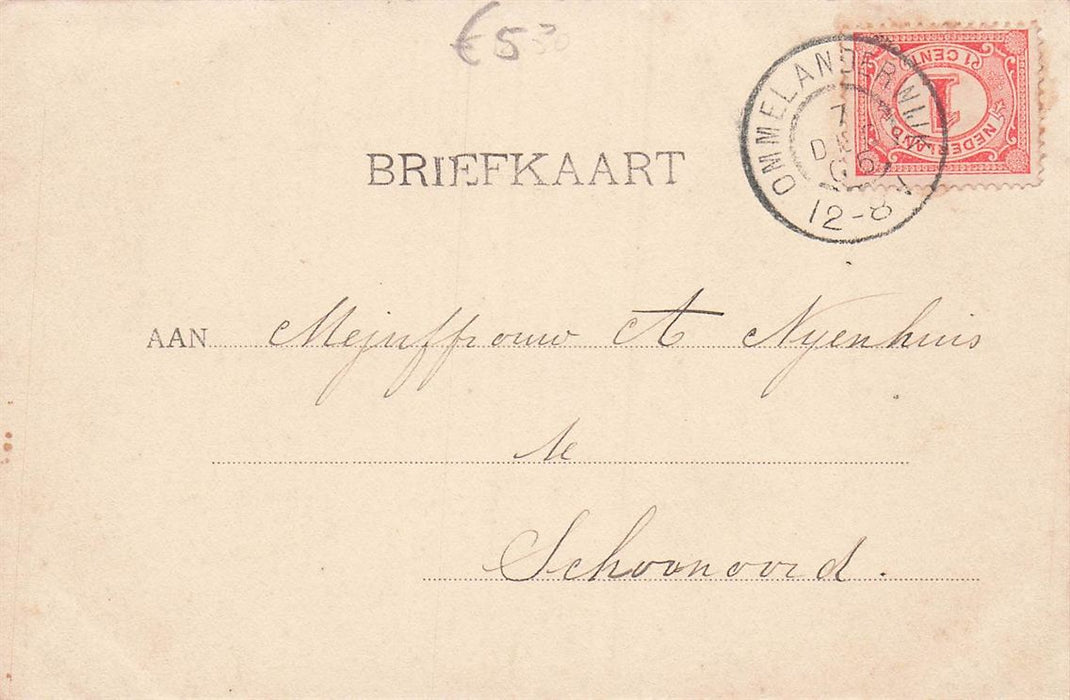 €5 30
BRIEFKAART
OMMELANDERWIJK
7
DEC
05
12-8
1 CENT
1
NEDERLAND
AAN Mejuffrouw A Nyenhuis
te
Schoonoord.